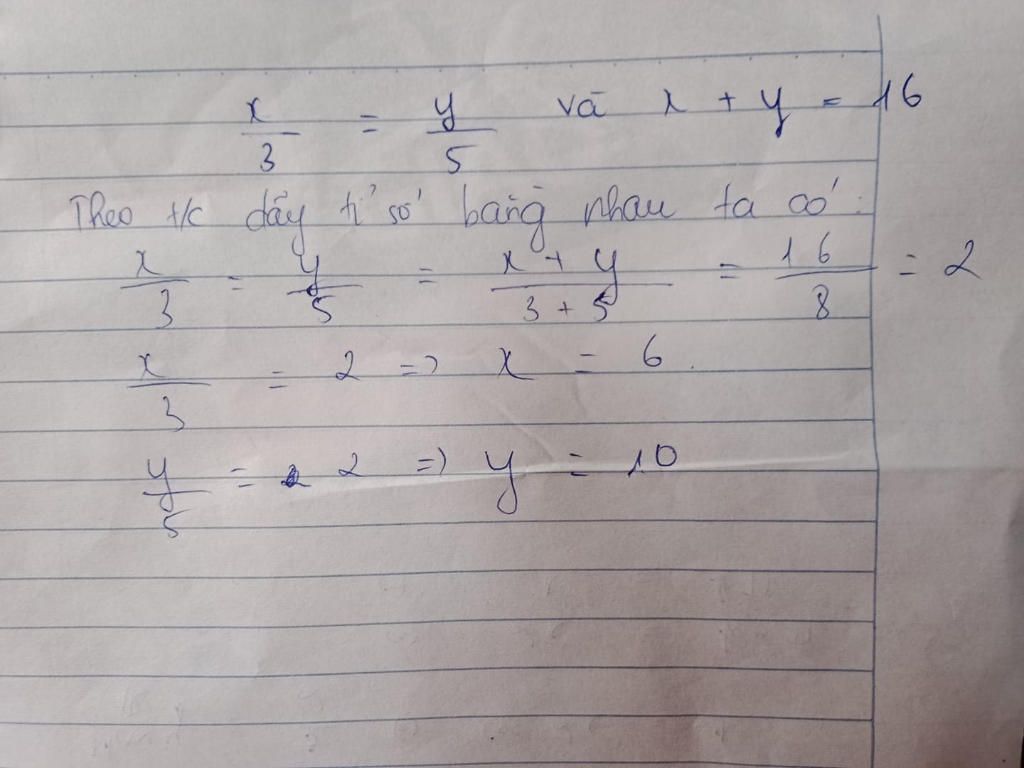 x/3 = y/5 và x + y = 16
Theo t/c dãy tỉ số bằng nhau ta có:
x/3 = y/5 = x + y/3 + 5 = 16/8 = 2
x/3 = 2 => x = 6.
y/5 = 2 => y = 10